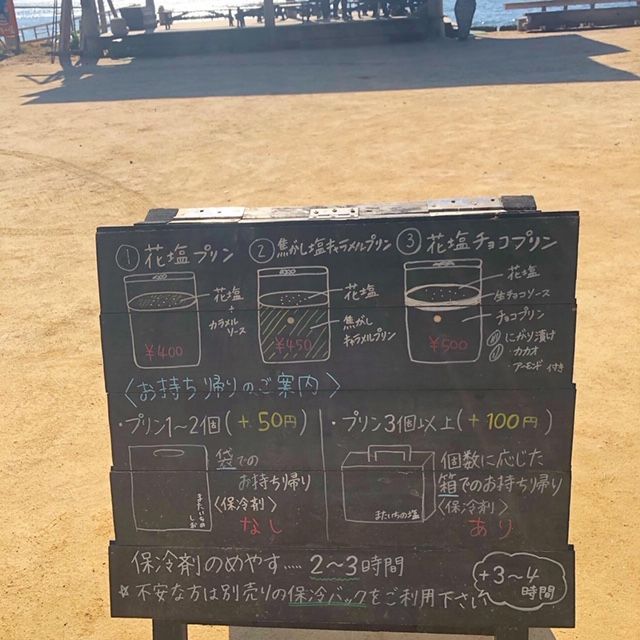 ① 花塩プリン
花塩
+
カラメル
ソース
¥400
② 焦がし塩キャラメルプリン
花塩
焦がし
キャラメルプリン
¥450
③ 花塩チョコプリン
花塩
生チョコソース
チョコプリン
にがり漬け
・カカオ
・アーモンド 付き
¥500
〈お持ち帰りのご案内〉
・プリン1〜2個(+50円)
袋での
お持ち帰り
〈保冷剤〉
なし
またいちの
しお
・プリン3個以上(+100円)
個数に応じた
箱でのお持ち帰り
〈保冷剤〉
あり
またいちの塩
保冷剤のめやす…‥ 2〜3時間
☆不安な方は別売りの保冷バックをご利用下さい
+3〜4
時間